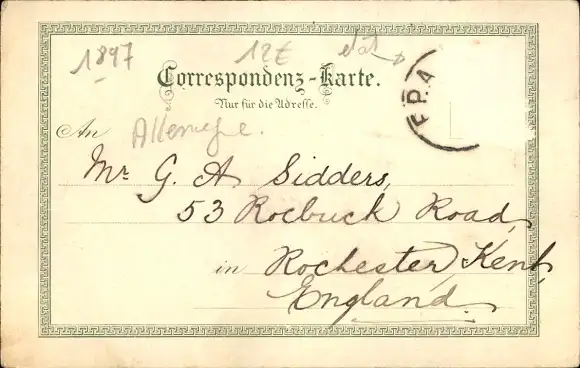 1897
12€
état
Correspondenz-Karte.
Nur für die Adresse.
F.P.A
An
Allemagne.
Mr G. A Sidders,
53 Roebuck Road,
in Rochester, Kent,
England.